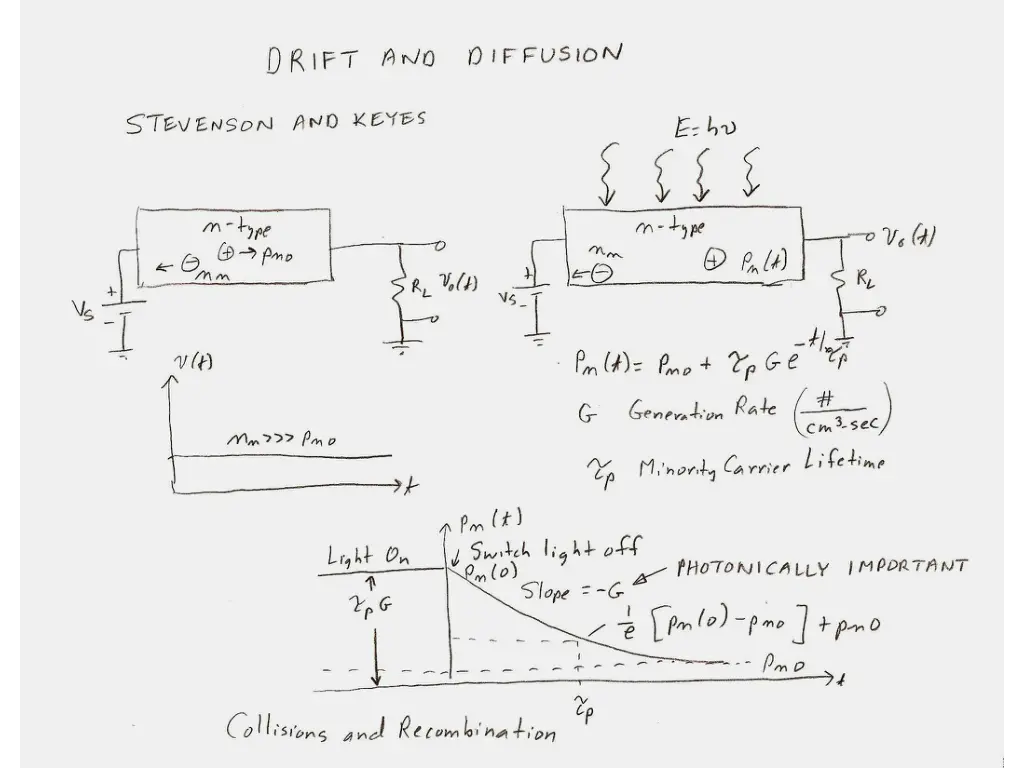 DRIFT AND DIFFUSION
STEVENSON AND KEYES
E=hν
n-type
⊕→ pno
←⊖
nn
+
Vs
-
RL Vo(t)
n-type
nn
←⊖
⊕ Pn(t)
+
Vs
-
Vo(t)
RL
V(t)
nn >>> Pno
t
Pn(t) = Pno + τp G e^-t/τp
G Generation Rate (#/cm³-sec)
τp Minority Carrier Lifetime
Pn(t)
Light On
Switch light off
Pn(0)
Slope = -G ← PHOTONICALLY IMPORTANT
τp G
1/e [Pn(0) - pno] + pno
Pno
t
τp
Collisions and Recombination